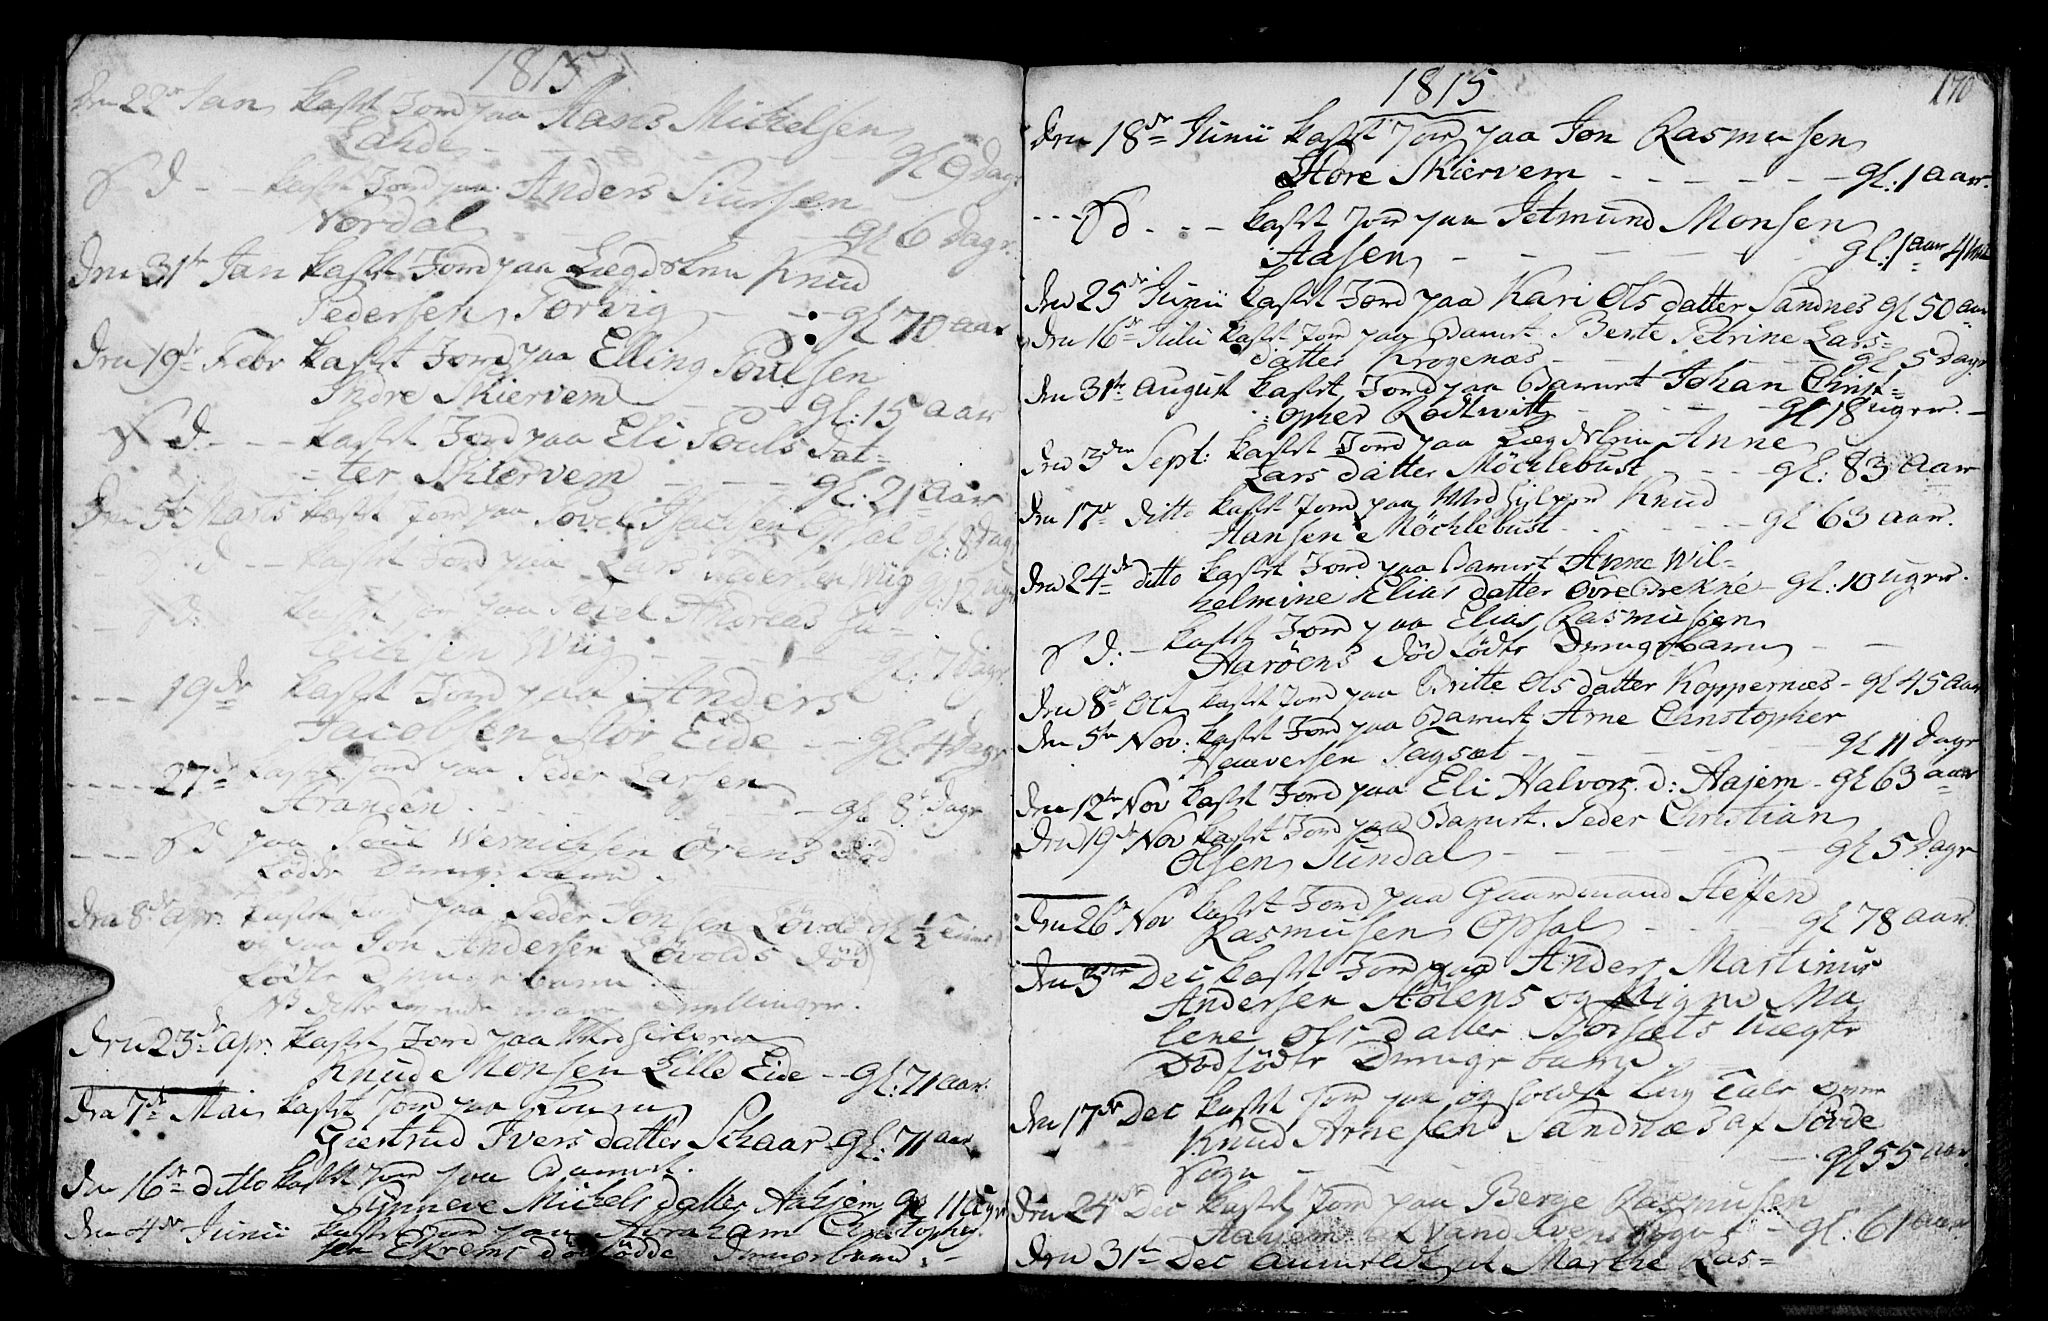 1815
Den 22de Jan kastet Jord paa Hans Mickelsen
Lande - - - gl 9 Dage
S d. - - kastet Jord paa Anders Siursen
Nordal - - - gl 6 Dage
Den 31te Jan kastet Jord paa Lægdslem Knud
Pedersen Torvig - - gl 70 aar
Den 19de Febr kastet Jord paa Elling Poulsen
Indre Skiervem - - gl: 15 aar
S d. - - - kastet Jord paa Eli Pouls Dat=
=ter Skiervem - - - gl: 21 aar
Den 5te Marts kastet Jord paa Opsal gl: 8 Dage
S d - - kastet Jord paa Lars Wiig gl: 12 uger
S d: kastet Jord paa Andreas
Wiig - gl: 7 Dage
- - - 19de kastet Jord paa Anders
Jacobsen Stor Eide - - gl 4 Dage
- - - - 27de kastet Jord paa Peder Larsen
Stranden - - - gl 8te Dage
- - - S d paa Poul Wernichsen Örens død
födte Drengebarn.
Den 8de Apr: kastet Jord paa Peder Jonsen Lövold gl 1/2
og paa Jon Andersen Lövolds död
födte Drengebarn.
Den 23de apr: kastet Jord paa
Knud Monsen Lille Eide - gl: 71 aar
Den 7de Mai kastet Jord paa Konen
Giertrud Ivers datter Schaar - gl: 71 aar
Den 16de ditto kastet Jord paa Barnet
Synneve Mickels datter Aahjem gl 11 Uger
Den 4de Junii kastet Jord paa Abraham Christopher
sen Ekrems dödfödde Drengebarn. -
1815
170
Den 18de Junii kastet Jord paa Jon Rasmusen
Store Skiervem - - - - gl: 1 aar.
- - - S d - - - kastet Jord paa Jetmund Monsen
Aasen - - - gl: 1 aar 4
Den 25de Junii kastet Jord paa Kari Ols datter Sandnes gl 50 aar
Den 16de Julii kastet Jord paa Barnet Berte Petrine Lars=
datter Krogenæs - - - gl 5 Dage
Den 31te August kastet Jord paa Barnet Johan Christ=
=opher Rodtwitt - - - gl 18 uger. -
Den 3die Sept: kastet Jord paa Lægdslem Anne
Lars datter Möchlebust - - - gl: 83 Aar
Den 17de ditto kastet Jord paa Knud
Hansen Möchlebust - - - gl 63 aar.
Den 24de ditto kastet Jord paa Barnet Anne Wil=
helmine Elias datter Övre Brekne - gl: 10 uger.
S d: - kastet Jord paa Elias Rasmussen
Haröens død födte Drengebarn - -
Den 8de Oct kastet Jord paa Britte Ols datter Koppernæs - gl 45 aar
Den 5te Nov: kastet Jord paa Barnet Arne Christopher
Haaversen Sagsæt - - - gl 11 Dage
Den 12te Nov kastet Jord paa Eli Halvors. d: Aajem - gl 63 aar
Den 19de Nov kastet Jord paa Barnet. Peder Christian
Olsen Sundal - - - gl 5 Dage
Den 26de Nov kastet Jord paa Gaardmand Steffen
Rasmussen Opsal - - - gl 78 aar.
Den 3die Dec kastet Jord paa Anders Martinus
Andersen Hölens og Signe Ma
lene Ols datter Borsæts uægte
Dødfödte Drengebarn
Den 17de Dec kastet Jord paa og holdt Lig Tale over
Knud Arnesen Sandnæs af Jövde
Sogn - - - gl 55 aar.
Den 24de Dec kastet Jord paa Berge Rasmusen
Aahjem af Vandelvens Sogn - gl: 61 aar
Den 31te Dec anmeldt at Marthe Ras=